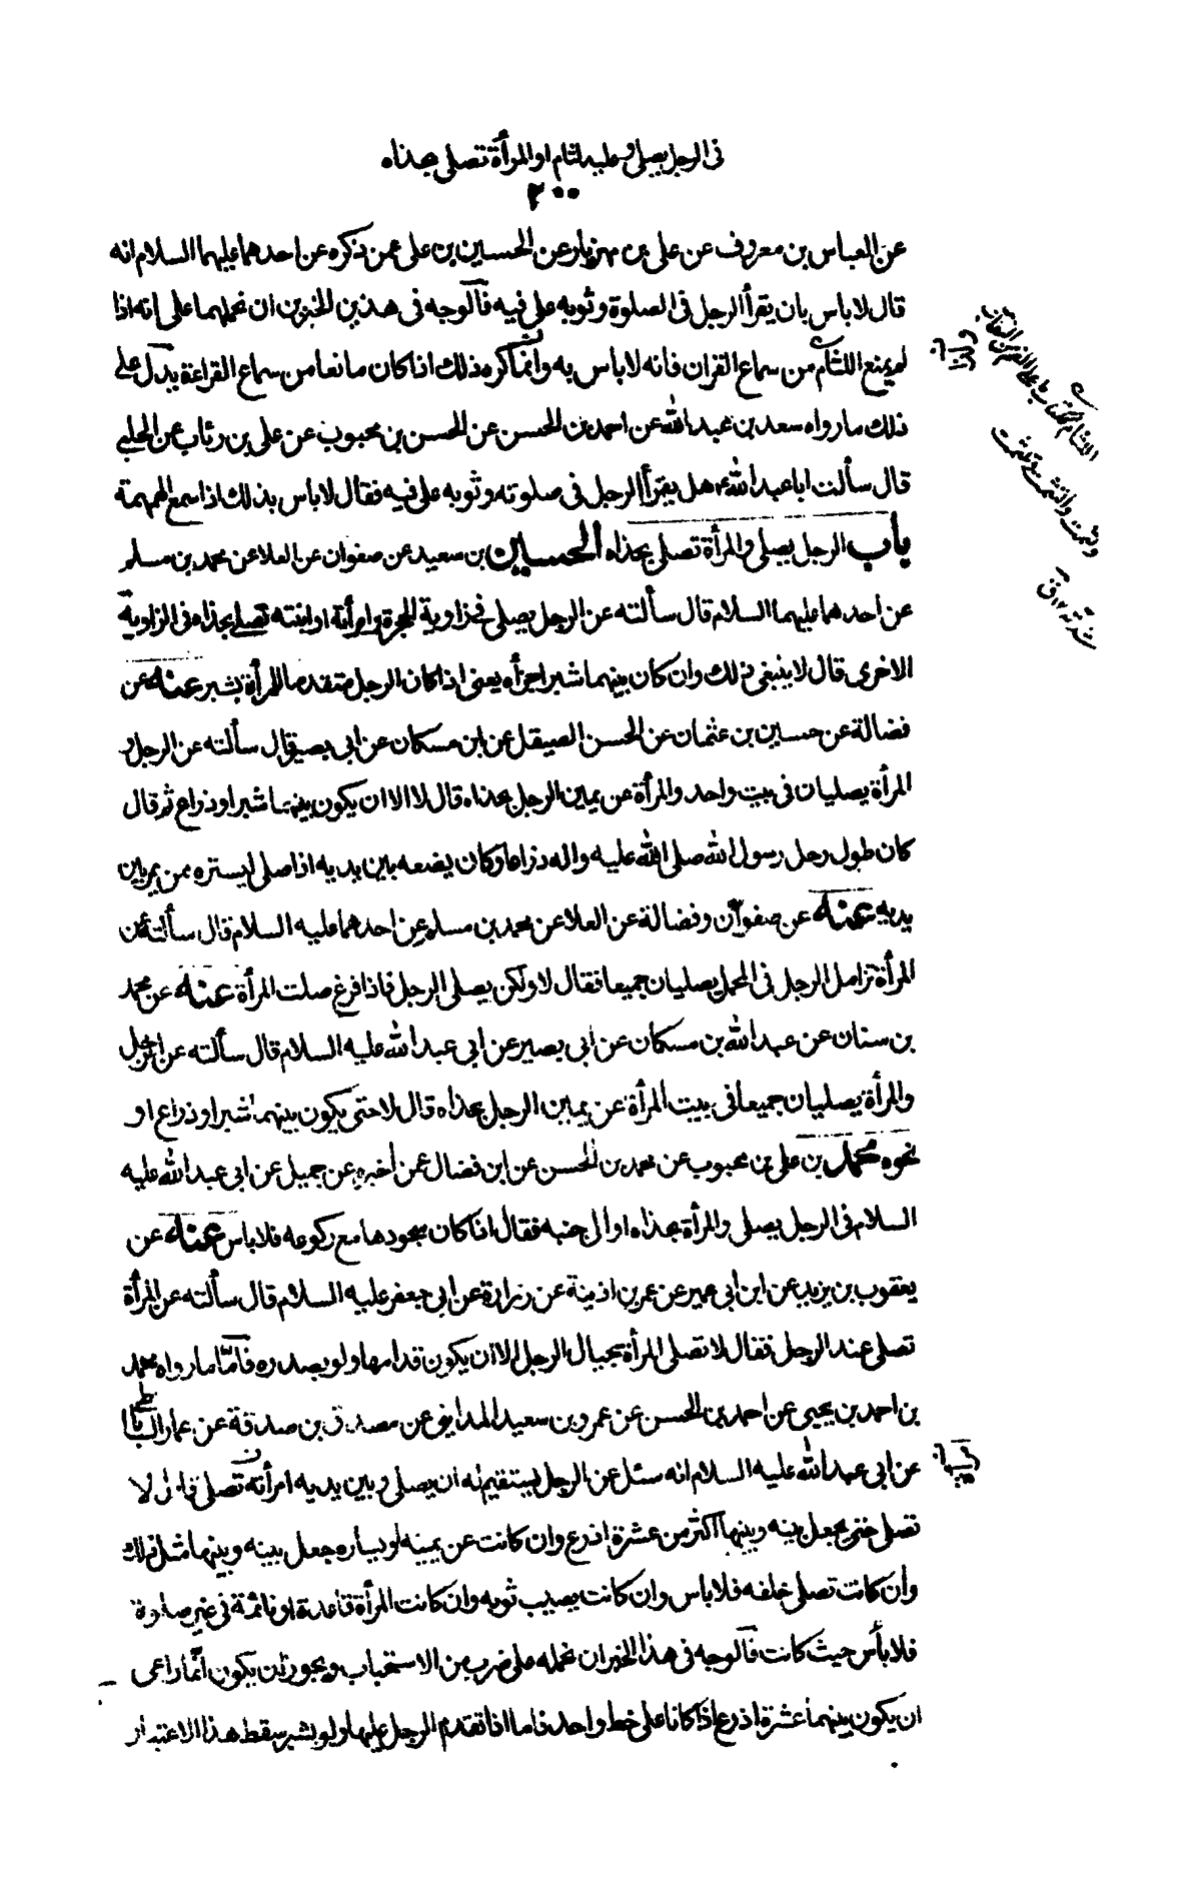 فى الرجل يصلى وعليه لثام او المرأة تصلى بحذاه
٢٠٠
عن العباس بن معروف عن على بن مهزيار عن الحسين بن على عمن ذكره عن احدهما عليهما السلام انه
قال لا باس بان يقرأ الرجل فى الصلوة وثوبه على فيه فالوجه فى هذين الخبرين ان نحملهما على انه اذا
لم يمنع اللثام من سماع القران فانه لا باس به وانما كره ذلك اذا كان مانعا من سماع القراءة يدل على
ذلك ما رواه سعد بن عبد الله عن احمد بن الحسن عن الحسن بن محبوب عن على بن رئاب عن الحلبى
قال سألت ابا عبد الله ع هل يقرأ الرجل فى صلوته وثوبه على فيه فقال لا باس بذلك اذا سمع الهمهمة
باب الرجل يصلى والمرأة تصلى بحذاه الحسين بن سعيد عن صفوان عن العلا عن محمد بن مسلم
عن احدهما عليهما السلام قال سألته عن الرجل يصلى فى زاوية الحجرة وامرأته او ابنته تصلى بحذاه فى الزاوية
الاخرى قال لا ينبغى ذلك وان كان بينهما شبر اجزأه يعنى اذا كان الرجل متقدما للمرأة بشبر عنه عن
فضالة عن حسين بن عثمان عن الحسن الصيقل عن ابن مسكان عن ابى بصير قال سألته عن الرجل و
المرأة يصليان فى بيت واحد والمرأة عن يمين الرجل بحذاه قال لا الا ان يكون بينهما شبر او ذراع ثم قال
كان طول رحل رسول الله صلى الله عليه واله ذراعا وكان يضعه بين يديه اذا صلى ليستره ممن يمر بين
يديه عنه عن صفوان وفضالة عن العلا عن محمد بن مسلم عن احدهما عليه السلام قال سألته عن
المرأة تزامل الرجل فى المحمل يصليان جميعا فقال لا ولكن يصلى الرجل فاذا فرغ صلت المرأة عنه عن محمد
بن سنان عن عبد الله بن مسكان عن ابى بصير عن ابى عبد الله عليه السلام قال سألته عن الرجل
والمرأة يصليان جميعا فى بيت المرأة عن يمين الرجل بحذاه قال لا حتى يكون بينهما شبر او ذراع او
نحوه محمد بن على بن محبوب عن محمد بن الحسن عن ابن فضال عمن أخبره عن جميل عن ابى عبد الله عليه
السلام فى الرجل يصلى والمرأة بحذاه او الى جنبه فقال اذا كان سجودها مع ركوعه فلا باس عنه عن
يعقوب بن يزيد عن ابن ابى عمير عن عمر بن اذينة عن زرارة عن ابى جعفر عليه السلام قال سألته عن المرأة
تصلى عند الرجل فقال لا تصلى المرأة بحيال الرجل الا ان يكون قدامها ولو بصدره فأما ما رواه محمد
بن احمد بن يحيى عن احمد بن الحسن عن عمرو بن سعيد المداينى عن مصدق بن صدقة عن عمار الساباطى
عن ابى عبد الله عليه السلام انه سئل عن الرجل يستقيم له ان يصلى وبين يديه امرأة تصلى قال لا
تصلى حتى يجعل بينه وبينها اكثر من عشرة اذرع وان كانت عن يمينه او يساره جعل بينه وبينها مثل ذلك
وان كانت تصلى خلفه فلا باس وان كانت يصيب ثوبه وان كانت المرأة قاعدة او نائمة فى غير صلوة
فلا بأس حيث كانت فالوجه فى هذا الخبر ان نحمله على ضرب من الاستحباب ويجوز ان يكون انما راعى
ان يكون بينهما عشرة اذرع اذا كانا على خط واحد فاما اذا تقدم الرجل عليها ولو بشبر سقط هذا الاعتبار